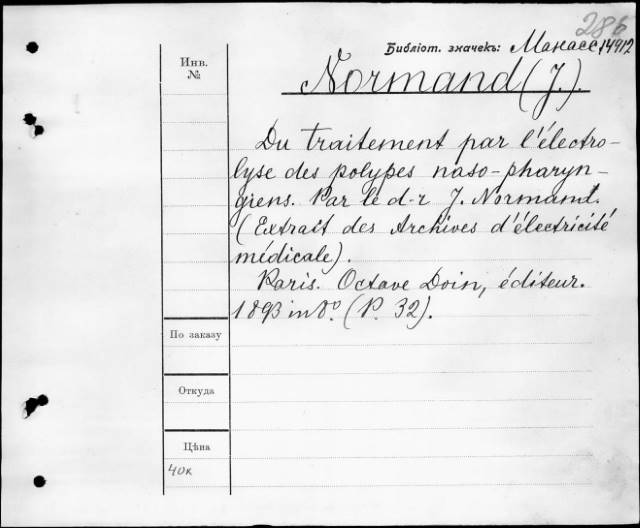 286
Библіот. значекъ: Манасс 14912
Инв.
№
Normand (J.).
Du traitement par l'électro-
lyse des polypes naso-pharyn-
giens. Par le d-r J. Normand.
(Extrait des Archives d'électricité
médicale).
Paris. Octave Doin, éditeur.
1893 in 8º. (P. 32).
По заказу
Откуда
Цѣна
40к